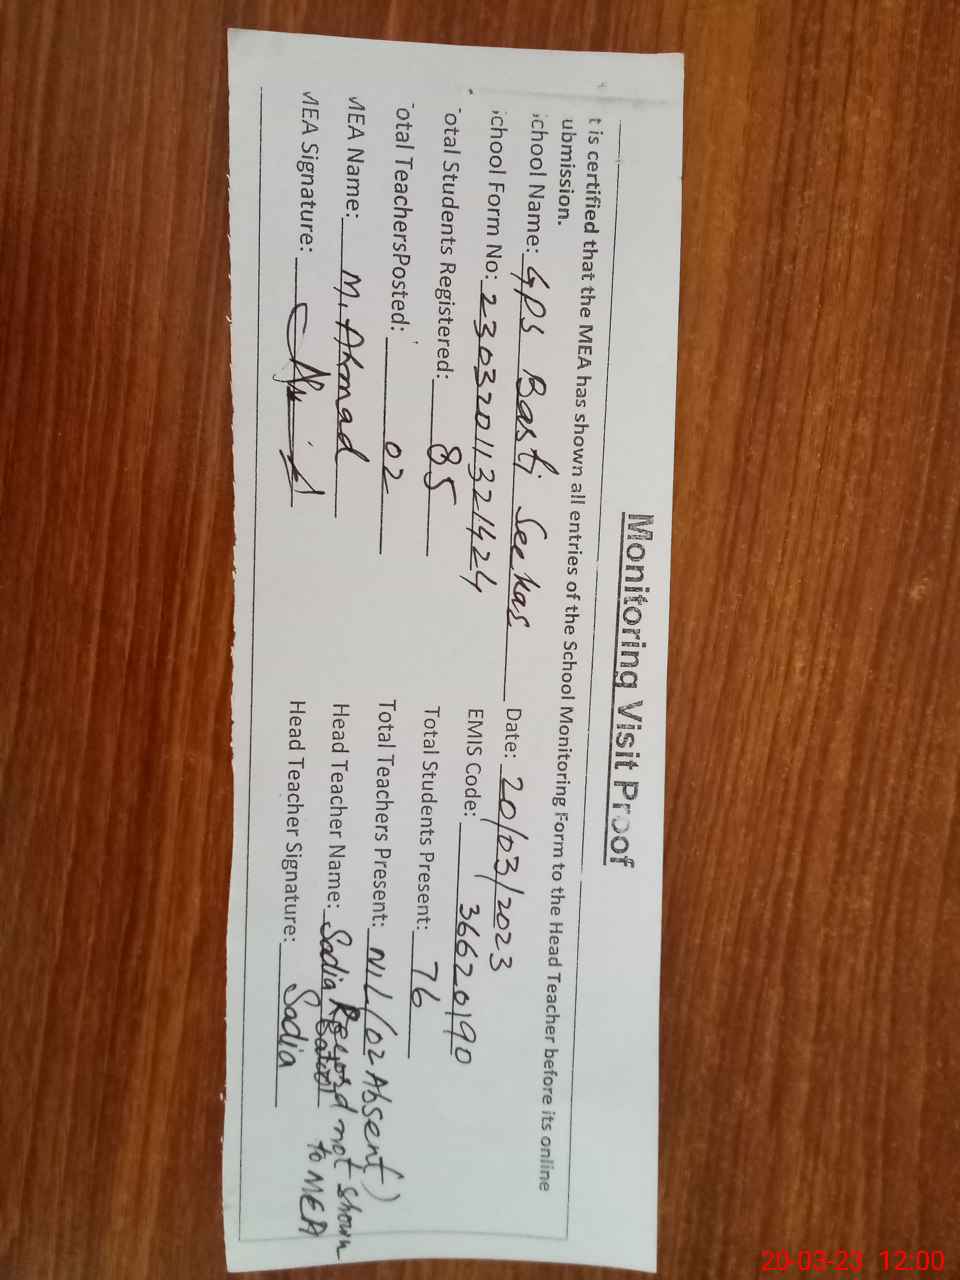 Monitoring Visit Proof
t is certified that the MEA has shown all entries of the School Monitoring Form to the Head Teacher before its online
ubmission.
chool Name: GPS Basti Seekas Date: 20/03/2023
chool Form No: 23032011321424 EMIS Code: 36620190
otal Students Registered: 85 Total Students Present: 76
otal TeachersPosted: 02 Total Teachers Present: NIL (02 Absent)
MEA Name: M. Ahmad Head Teacher Name: Sadia Batool
Record not shown
to MEA
MEA Signature: Head Teacher Signature: Sadia
20-03-23 12:00